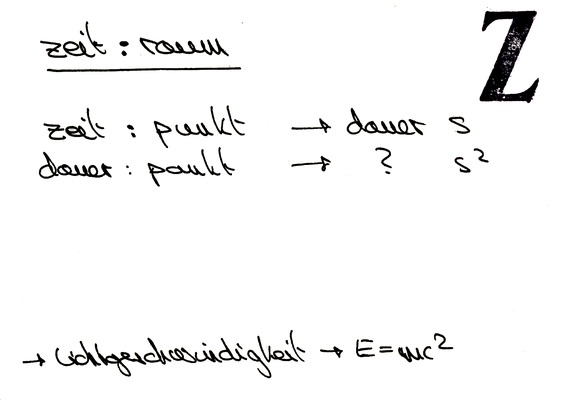 zeit : raum
Z
zeit : punkt → dauer s
dauer : punkt → ? s²
→ lichtgeschwindigkeit → E = mc²